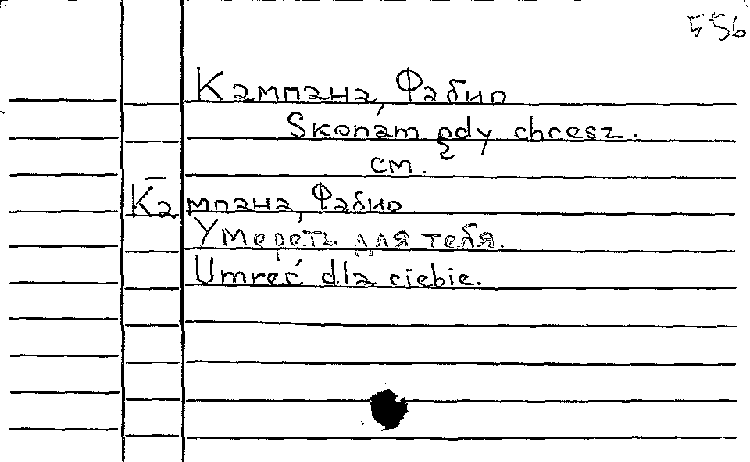 556
Кампана, Фабио
Skonam gdy chcesz.
см.
Кампана, Фабио
Умереть для тебя.
Umreć dla ciebie.